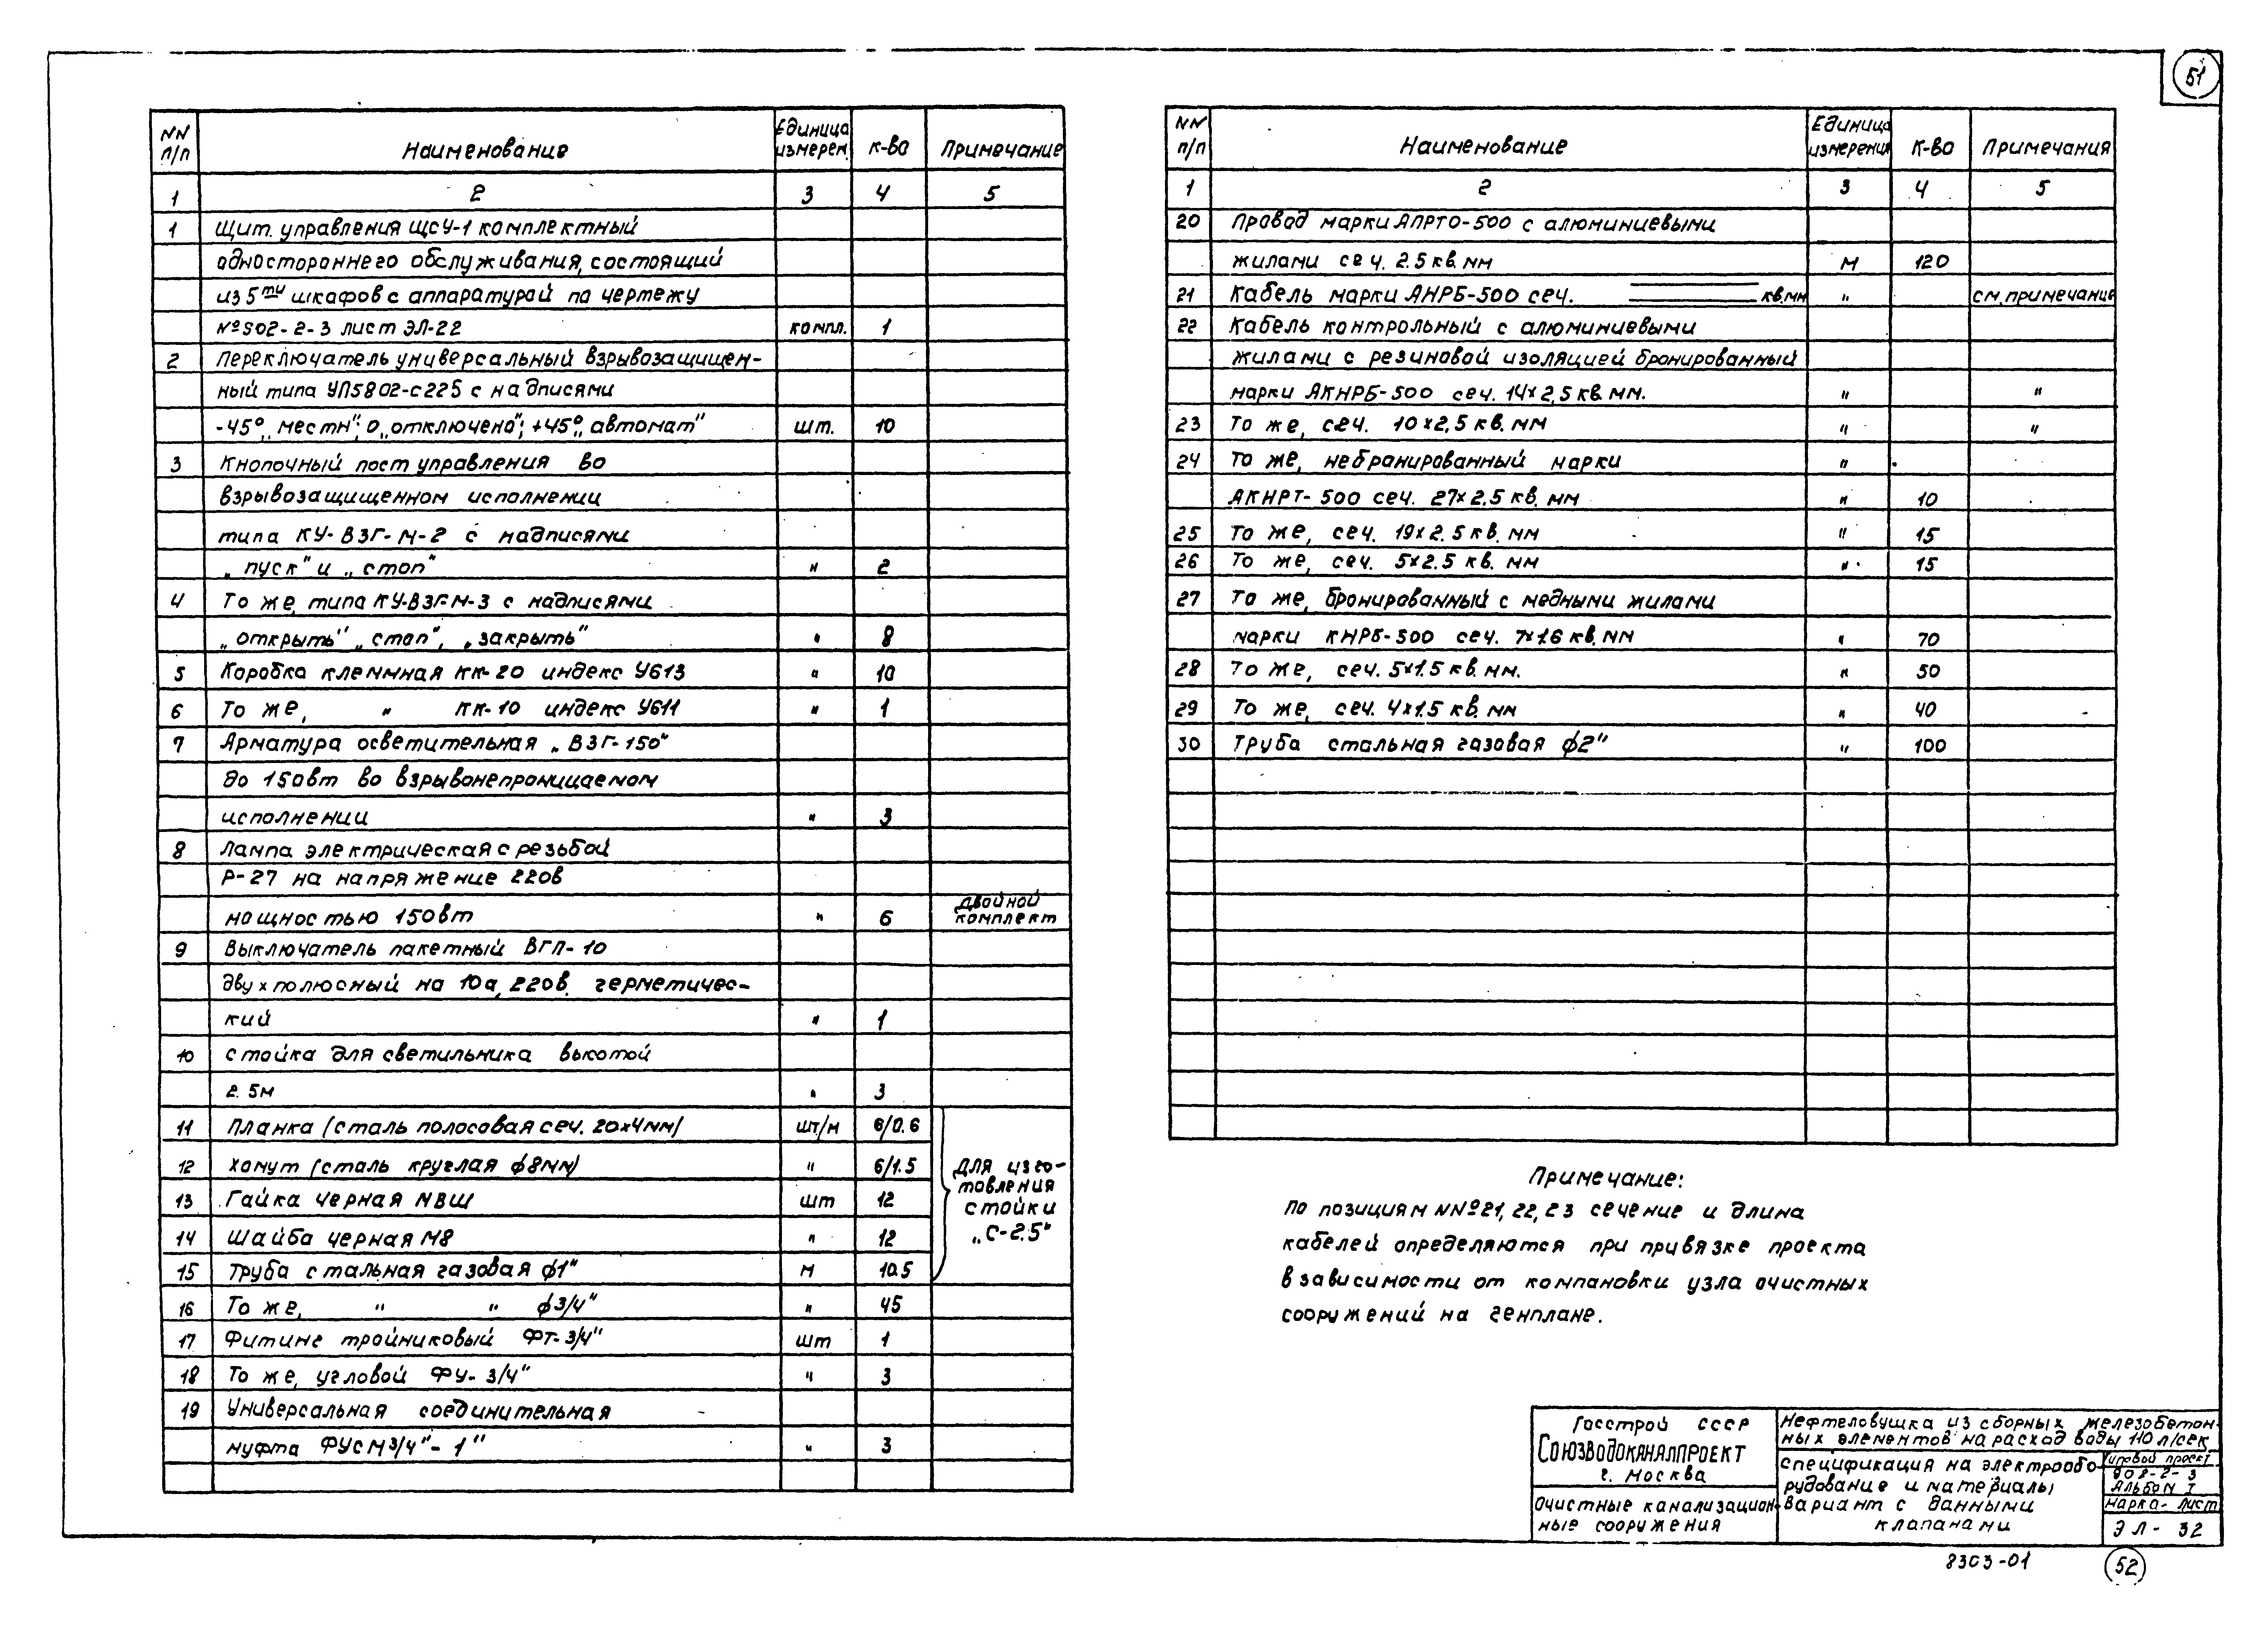 51
NN п/п Наименование Единица измерен. к-во Примечание
1 2 3 4 5
1 Щит управления ЩСУ-1 комплектный
одностороннего обслуживания, состоящий
из 5ти шкафов с аппаратурой по чертежу
№902-2-3 лист ЭЛ-22 компл. 1
2 Переключатель универсальный взрывозащищен-
ный типа УП5802-с225 с надписями
-45° „местн"; 0 „отключено"; +45° „автомат" шт. 10
3 Кнопочный пост управления во
взрывозащищенном исполнении
типа КУ-ВЗГ-М-2 с надписями
„пуск" и „стоп" " 2
4 То же, типа КУ-ВЗГ-М-3 с надписями
„открыть" „стоп", „закрыть" " 8
5 Коробка клеммная КК-20 индекс У613 " 10
6 То же, " КК-10 индекс У611 " 1
7 Арматура осветительная „ВЗГ-150"
до 150вт во взрывонепроницаемом
исполнении " 3
8 Лампа электрическая с резьбой
Р-27 на напряжение 220в
мощностью 150вт " 6 двойной комплект
9 Выключатель пакетный ВГП-10
двухполюсный на 10а, 220в, герметичес-
кий " 1
10 Стойка для светильника высотой
2.5м " 3
11 Планка (сталь полосовая сеч. 20х4мм) шт/м 6/0.6
12 Хомут (сталь круглая ф8мм) " 6/1.5
13 Гайка черная МВШ шт 12
14 Шайба черная М8 " 12
15 Труба стальная газовая ф1" м 10.5
Для изго-
товления
стойки
„С-2.5"
16 То же, " " ф3/4" " 45
17 Фитинг тройниковый ФТ-3/4" шт 1
18 То же, угловой ФУ-3/4" " 3
19 Универсальная соединительная
муфта ФУСМ3/4"-1" " 3
NN п/п Наименование Единица измерения К-во Примечания
1 2 3 4 5
20 Провод марки АПРТО-500 с алюминиевыми
жилами сеч. 2.5 кв.мм м 120
21 Кабель марки АНРБ-500 сеч. кв.мм " см. примечание
22 Кабель контрольный с алюминиевыми
жилами с резиновой изоляцией бронированный
марки АКНРБ-500 сеч. 14х2,5 кв.мм. " "
23 То же, сеч. 10х2,5 кв.мм " "
24 То же, небронированный марки "
АКНРТ-500 сеч. 27х2.5 кв.мм " 10
25 То же, сеч. 19х2.5 кв.мм " 15
26 То же, сеч. 5х2.5 кв.мм " 15
27 То же, бронированный с медными жилами
марки КНРБ-500 сеч. 7х1.6 кв.мм " 70
28 То же, сеч. 5х1.5 кв.мм. " 50
29 То же, сеч. 4х1.5 кв.мм " 40
30 Труба стальная газовая ф2" " 100
Примечание:
По позициям NN°21, 22, 23 сечение и длина
кабелей определяются при привязке проекта
в зависимости от компановки узла очистных
сооружений на генплане.
Госстрой СССР
Союзводоканалпроект
г. Москва
Очистные канализацион-
ные сооружения
Нефтеловушка из сборных железобетон-
ных элементов на расход воды 110 л/сек
Спецификация на электрообо-
рудование и материалы
вариант с данными
клапанами
Типовой проект
902-2-3
Альбом I
Марка-лист
ЭЛ-32
8303-01
52